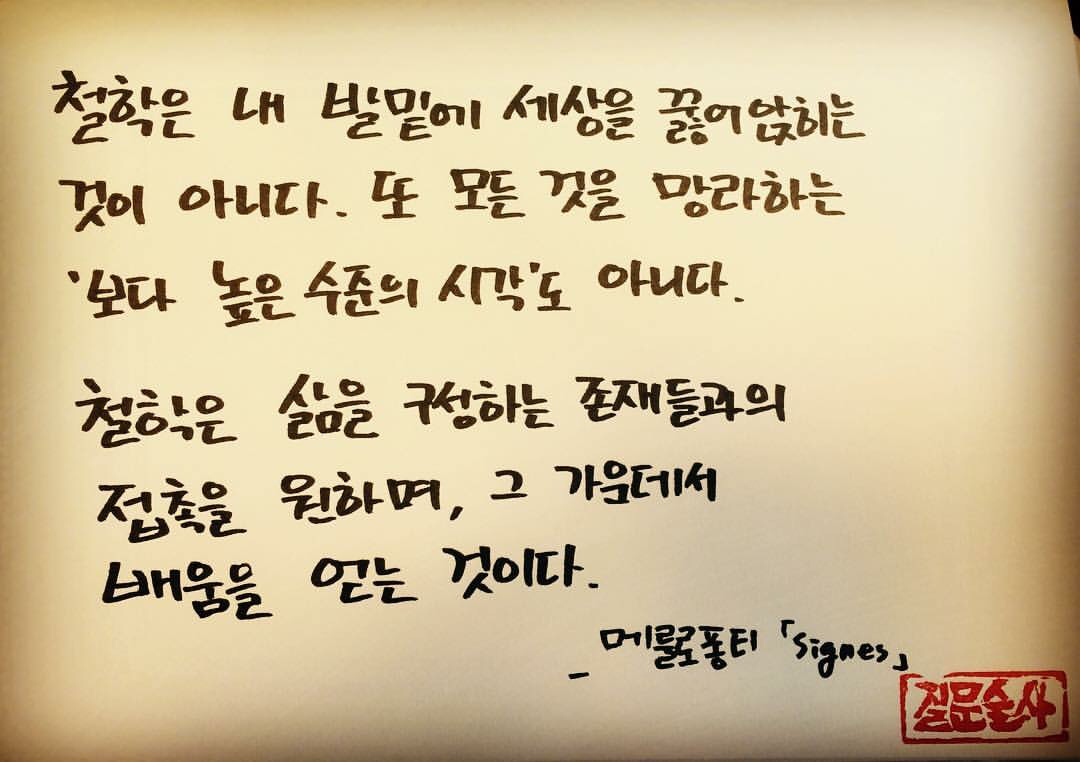 철학은 내 발밑에 세상을 꿇어앉히는
것이 아니다. 또 모든 것을 망라하는
'보다 높은 수준의 시각'도 아니다.
철학은 삶을 구성하는 존재들과의
접촉을 원하며, 그 가운데서
배움을 얻는 것이다.
_ 메를로퐁티 「Signes」
질문술사